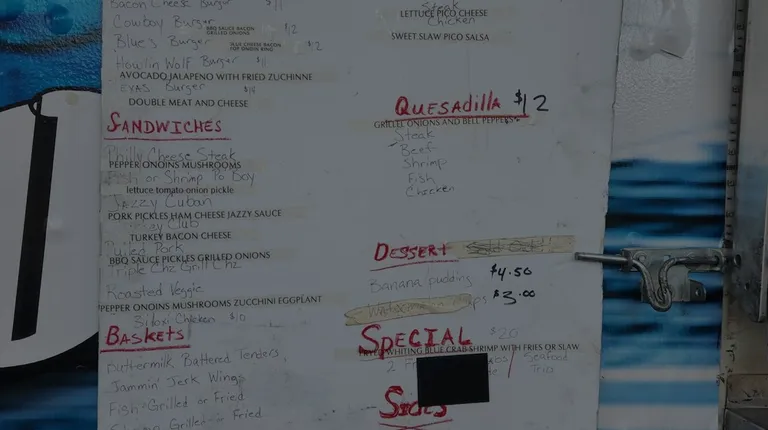 Bacon Cheese Burger $11
Cowboy Burger BBQ SAUCE BACON GRILLED ONIONS $12
Blues Burger BLUE CHEESE BACON TOP ONION RING $12
Howlin Wolf Burger $11
AVOCADO JALAPENO WITH FRIED ZUCHINNE
EVAS Burger
DOUBLE MEAT AND CHEESE
SANDWICHES
Philly Cheese Steak
PEPPER ONOINS MUSHROOMS
Fish or Shrimp Po Boy
lettuce tomato onion pickle
Jazzy Cuban
PORK PICKLES HAM CHEESE JAZZY SAUCE
Club
TURKEY BACON CHEESE
Pulled Pork
BBQ SAUCE PICKLES GRILLED ONIONS
Triple Chz Grill Chz
Roasted Veggie
PEPPER ONOINS MUSHROOMS ZUCCHINI EGGPLANT
Chicken $10
BASKETS
Buttermilk Battered Tenders
Jammin' Jerk Wings
Fish-Grilled or Fried
Grilled or Fried
Steak
LETTUCE PICO CHEESE
Chicken
SWEET SLAW PICO SALSA
QUESADILLA $12
GRILLED ONIONS AND BELL PEPPERS
Steak
Beef
Shrimp
Fish
Chicken
DESSERT
Banana pudding $4.50
$3.00
SPECIAL $20
FRIED WHITING BLUE CRAB SHRIMP WITH FRIES OR SLAW
2
Seafood
Trio
SIDES